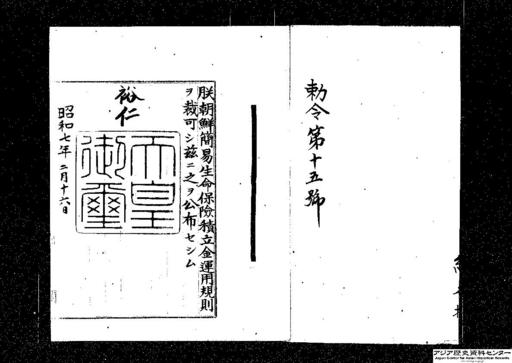 勅令第十五號
朕朝鮮簡易生命保險積立金運用規則
ヲ裁可シ茲ニ之ヲ公布セシム
裕仁
天皇御璽
昭和七年二月十六日
アジア歴史資料センター
Japan Center for Asian Historical Records